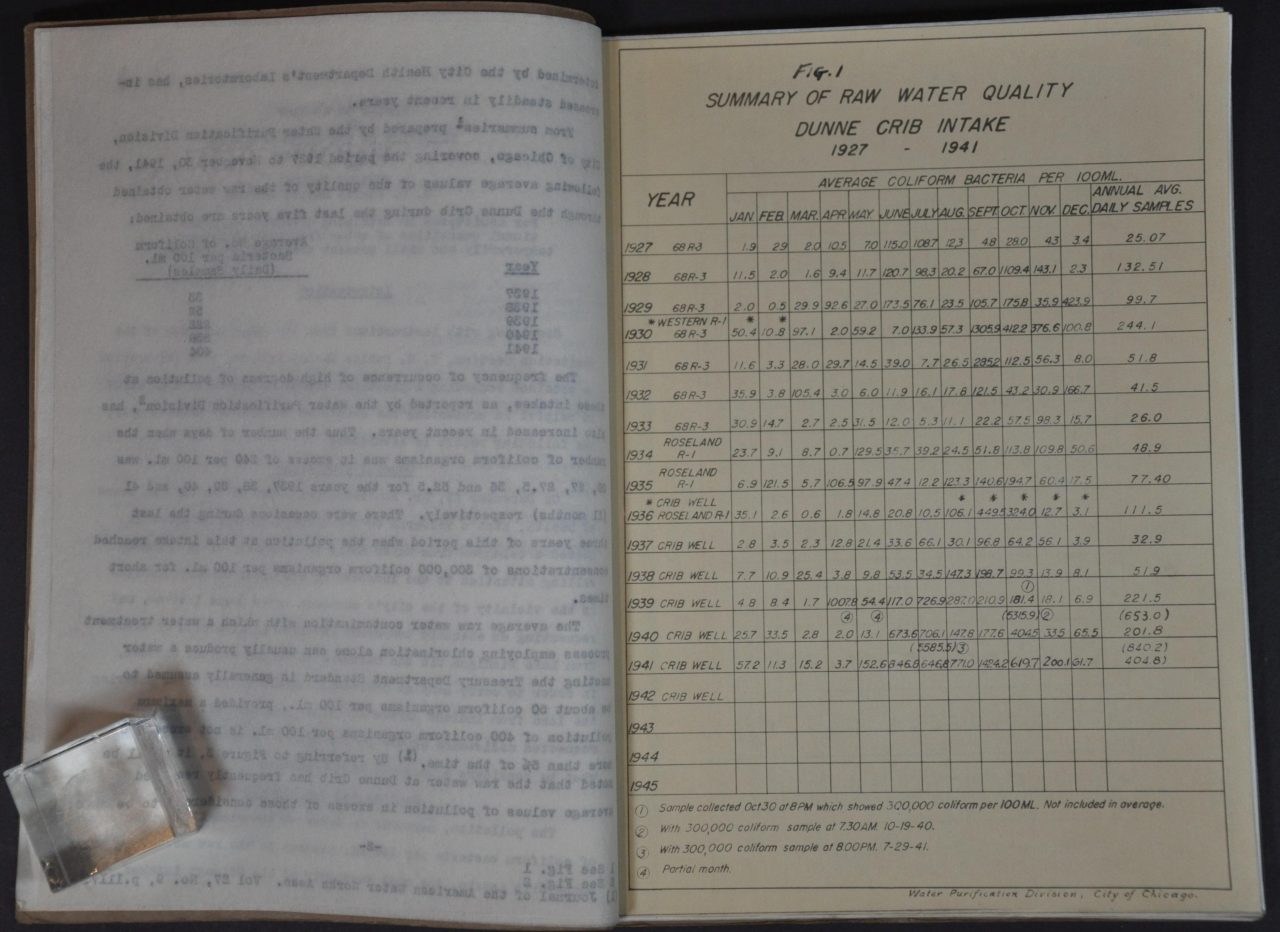 termined by the City Health Department's laboratories, has in-
creased steadily in recent years.
From summaries1 prepared by the Water Purification Division,
City of Chicago, covering the period 1927 to November 30, 1941, the
following average values of the quality of the raw water obtained
through the Dunne Crib during the last five years are obtained:
Year Average No. of Coliform
Bacteria per 100 ml.
(Daily Samples)
1937 33
1938 52
1939
1940
1941 404
The frequency of occurrence of high degrees of pollution at
these intakes, as reported by the Water Purification Division2, has
also increased in recent years. Thus the number of days when the
number of coliform organisms was in excess of 240 per 100 ml. was
27.5, 36 and 52.5 for the years 1937, 38, 39, 40, and 41
(11 months) respectively. There were occasions during the last
three years of this period when the pollution at this intake reached
concentrations of 300,000 coliform organisms per 100 ml. for short
times.
The average raw water contamination with which a water treatment
process employing chlorination alone can usually produce a water
meeting the Treasury Department Standard is generally assumed to
be about 50 coliform organisms per 100 ml., provided a maximum
pollution of 400 coliform organisms per 100 ml. is not
more than 5% of the time. By referring to Figure 2, it will be
noted that the raw water at Dunne Crib has frequently
average values of pollution in excess of those considered to be
-2-
1 See Fig. 1
2 See Fig. 2
Journal of the American Water Works Assn. Vol 27, No. 9, p.
FIG. 1
SUMMARY OF RAW WATER QUALITY
DUNNE CRIB INTAKE
1927 - 1941
YEAR AVERAGE COLIFORM BACTERIA PER 100ML.
JAN. FEB. MAR. APR. MAY. JUNE JULY AUG. SEPT. OCT. NOV. DEC. ANNUAL AVG. DAILY SAMPLES
1927 68 R-3 1.9 2.9 2.0 10.5 7.0 115.0 108.7 12.3 4.8 28.0 4.3 3.4 25.07
1928 68 R-3 11.5 2.0 1.6 9.4 11.7 120.7 98.3 20.2 67.0 1109.4 143.1 2.3 132.51
1929 68 R-3 2.0 0.5 29.9 92.6 27.0 173.5 76.1 23.5 105.7 175.8 35.9 423.9 99.7
* WESTERN R-1 * *
1930 68 R-3 50.4 10.8 97.1 2.0 59.2 7.0 133.9 57.3 1305.9 412.2 376.6 100.8 244.1
1931 68 R-3 11.6 3.3 28.0 29.7 14.5 39.0 7.7 26.5 285.2 112.5 56.3 8.0 51.8
1932 68 R-3 35.9 3.8 105.4 3.0 6.0 11.9 16.1 17.8 121.5 43.2 30.9 166.7 41.5
1933 68 R-3 30.9 14.7 2.7 2.5 31.5 12.0 5.3 11.1 22.2 57.5 98.3 15.7 26.0
ROSELAND
1934 R-1 23.7 9.1 8.7 0.7 129.5 35.7 39.2 24.5 51.8 113.8 109.8 50.6 48.9
ROSELAND
1935 R-1 6.9 121.5 5.7 106.5 97.9 47.4 12.2 123.3 140.6 194.7 60.4 17.5 77.40
* CRIB WELL * * * * *
1936 ROSELAND R-1 35.1 2.6 0.6 1.8 14.8 20.8 10.5 106.1 449.5 324.0 12.7 3.1 111.5
1937 CRIB WELL 2.8 3.5 2.3 12.8 21.4 33.6 66.1 30.1 96.8 64.2 56.1 3.9 32.9
1938 CRIB WELL 7.7 10.9 25.4 3.8 9.8 53.5 34.5 147.3 198.7 99.3 13.9 8.1 51.9
①
1939 CRIB WELL 4.8 8.4 1.7 1007.8 54.4 117.0 726.9 287.0 210.9 181.4 18.1 6.9 221.5
④ ④ (5315.9) ② (653.0)
1940 CRIB WELL 25.7 33.5 2.8 2.0 13.1 673.6 706.1 147.8 177.6 404.5 33.5 65.5 201.8
(5585.5) ③ (840.2)
1941 CRIB WELL 57.2 11.3 15.2 3.7 152.6 1424.2 619.7 200.1 31.7 404.8)
1942 CRIB WELL
1943
1944
1945
① Sample collected Oct 30 at 8PM which showed 300,000 coliform per 100ML. Not included in average.
② With 300,000 coliform sample at 7.30AM. 10-19-40.
③ With 300,000 coliform sample at 8.00PM. 7-29-41.
④ Partial month.
Water Purification Division, City of Chicago.